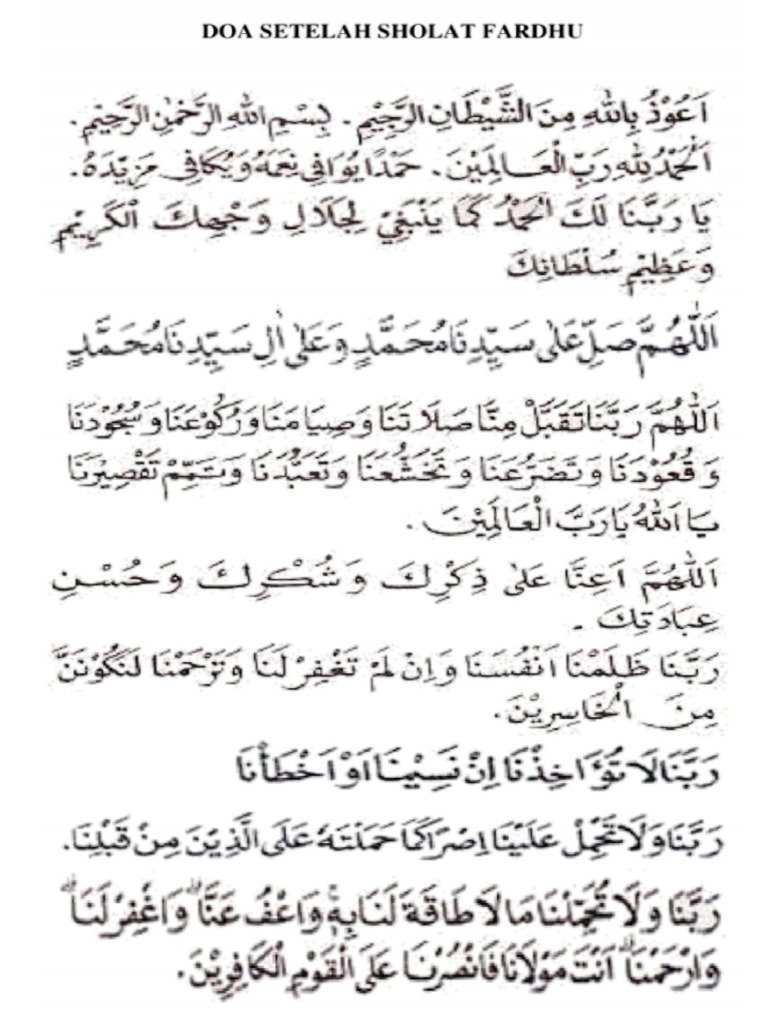 DOA SETELAH SHOLAT FARDHU
اَعُوْذُ بِاللهِ مِنَ الشَّيْطَانِ الرَّجِيْمِ. بِسْمِ اللهِ الرَّحْمٰنِ الرَّحِيْمِ.
اَلْحَمْدُ لِلّٰهِ رَبِّ الْعَالَمِيْنَ. حَمْدًا يُوَافِى نِعَمَهُ وَيُكَافِى مَزِيْدَهُ.
يَا رَبَّنَا لَكَ الْحَمْدُ كَمَا يَنْبَغِيْ لِجَلَالِ وَجْهِكَ الْكَرِيْمِ
وَعَظِيْمِ سُلْطَانِكَ
اَللّٰهُمَّ صَلِّ عَلٰى سَيِّدِنَا مُحَمَّدٍ وَعَلٰى اٰلِ سَيِّدِنَا مُحَمَّدٍ
اَللّٰهُمَّ رَبَّنَا تَقَبَّلْ مِنَّا صَلَاتَنَا وَصِيَامَنَا وَرُكُوْعَنَا وَسُجُوْدَنَا
وَقُعُوْدَنَا وَتَضَرُّعَنَا وَتَخَشُّعَنَا وَتَعَبُّدَنَا وَتَمِّمْ تَقْصِيْرَنَا
يَا اَللهُ يَارَبَّ الْعَالَمِيْنَ.
اَللّٰهُمَّ اَعِنَّا عَلٰى ذِكْرِكَ وَشُكْرِكَ وَحُسْنِ
عِبَادَتِكَ.
رَبَّنَا ظَلَمْنَا اَنْفُسَنَا وَاِنْ لَمْ تَغْفِرْ لَنَا وَتَرْحَمْنَا لَنَكُوْنَنَّ
مِنَ الْخَاسِرِيْنَ.
رَبَّنَا لَا تُؤَاخِذْنَا اِنْ نَسِيْنَا اَوْ اَخْطَأْنَا
رَبَّنَا وَلَا تَحْمِلْ عَلَيْنَا اِصْرًا كَمَا حَمَلْتَهُ عَلَى الَّذِيْنَ مِنْ قَبْلِنَا.
رَبَّنَا وَلَا تُحَمِّلْنَا مَا لَا طَاقَةَ لَنَا بِهٖ وَاعْفُ عَنَّا وَاغْفِرْ لَنَا
وَارْحَمْنَا اَنْتَ مَوْلَانَا فَانْصُرْنَا عَلَى الْقَوْمِ الْكَافِرِيْنَ.